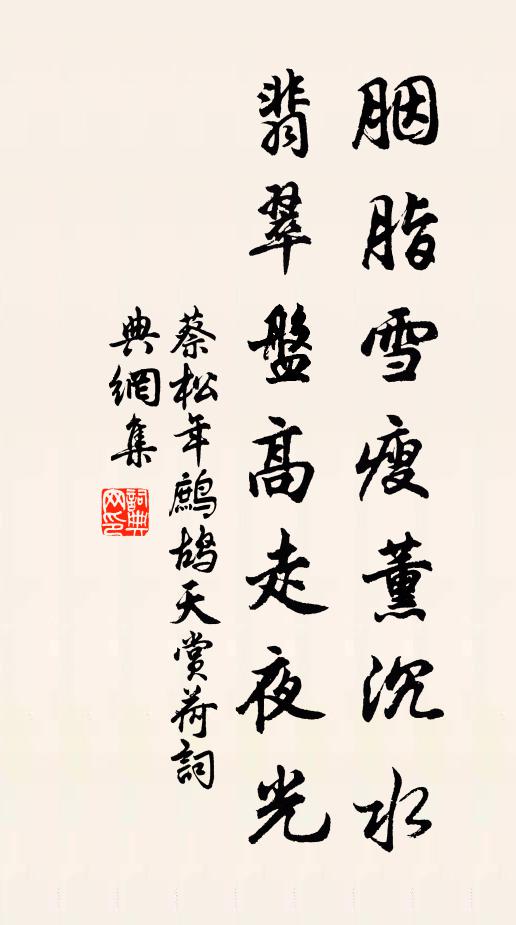 胭脂雪瘦薰沉水
翡翠盤高走夜光
蔡松年鷓鴣天賞荷詞
典網集
詞典网印